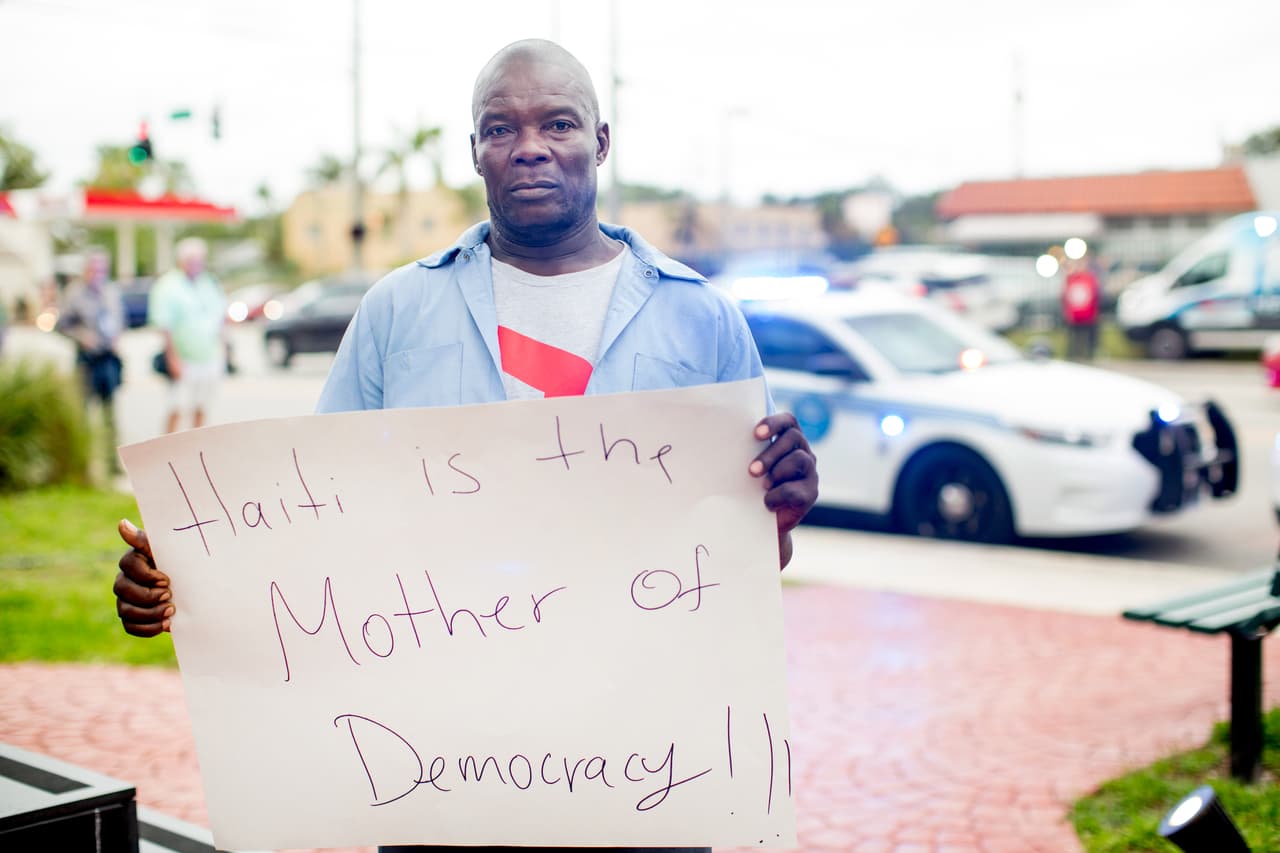 Haiti is the
Mother of
Democracy!!!